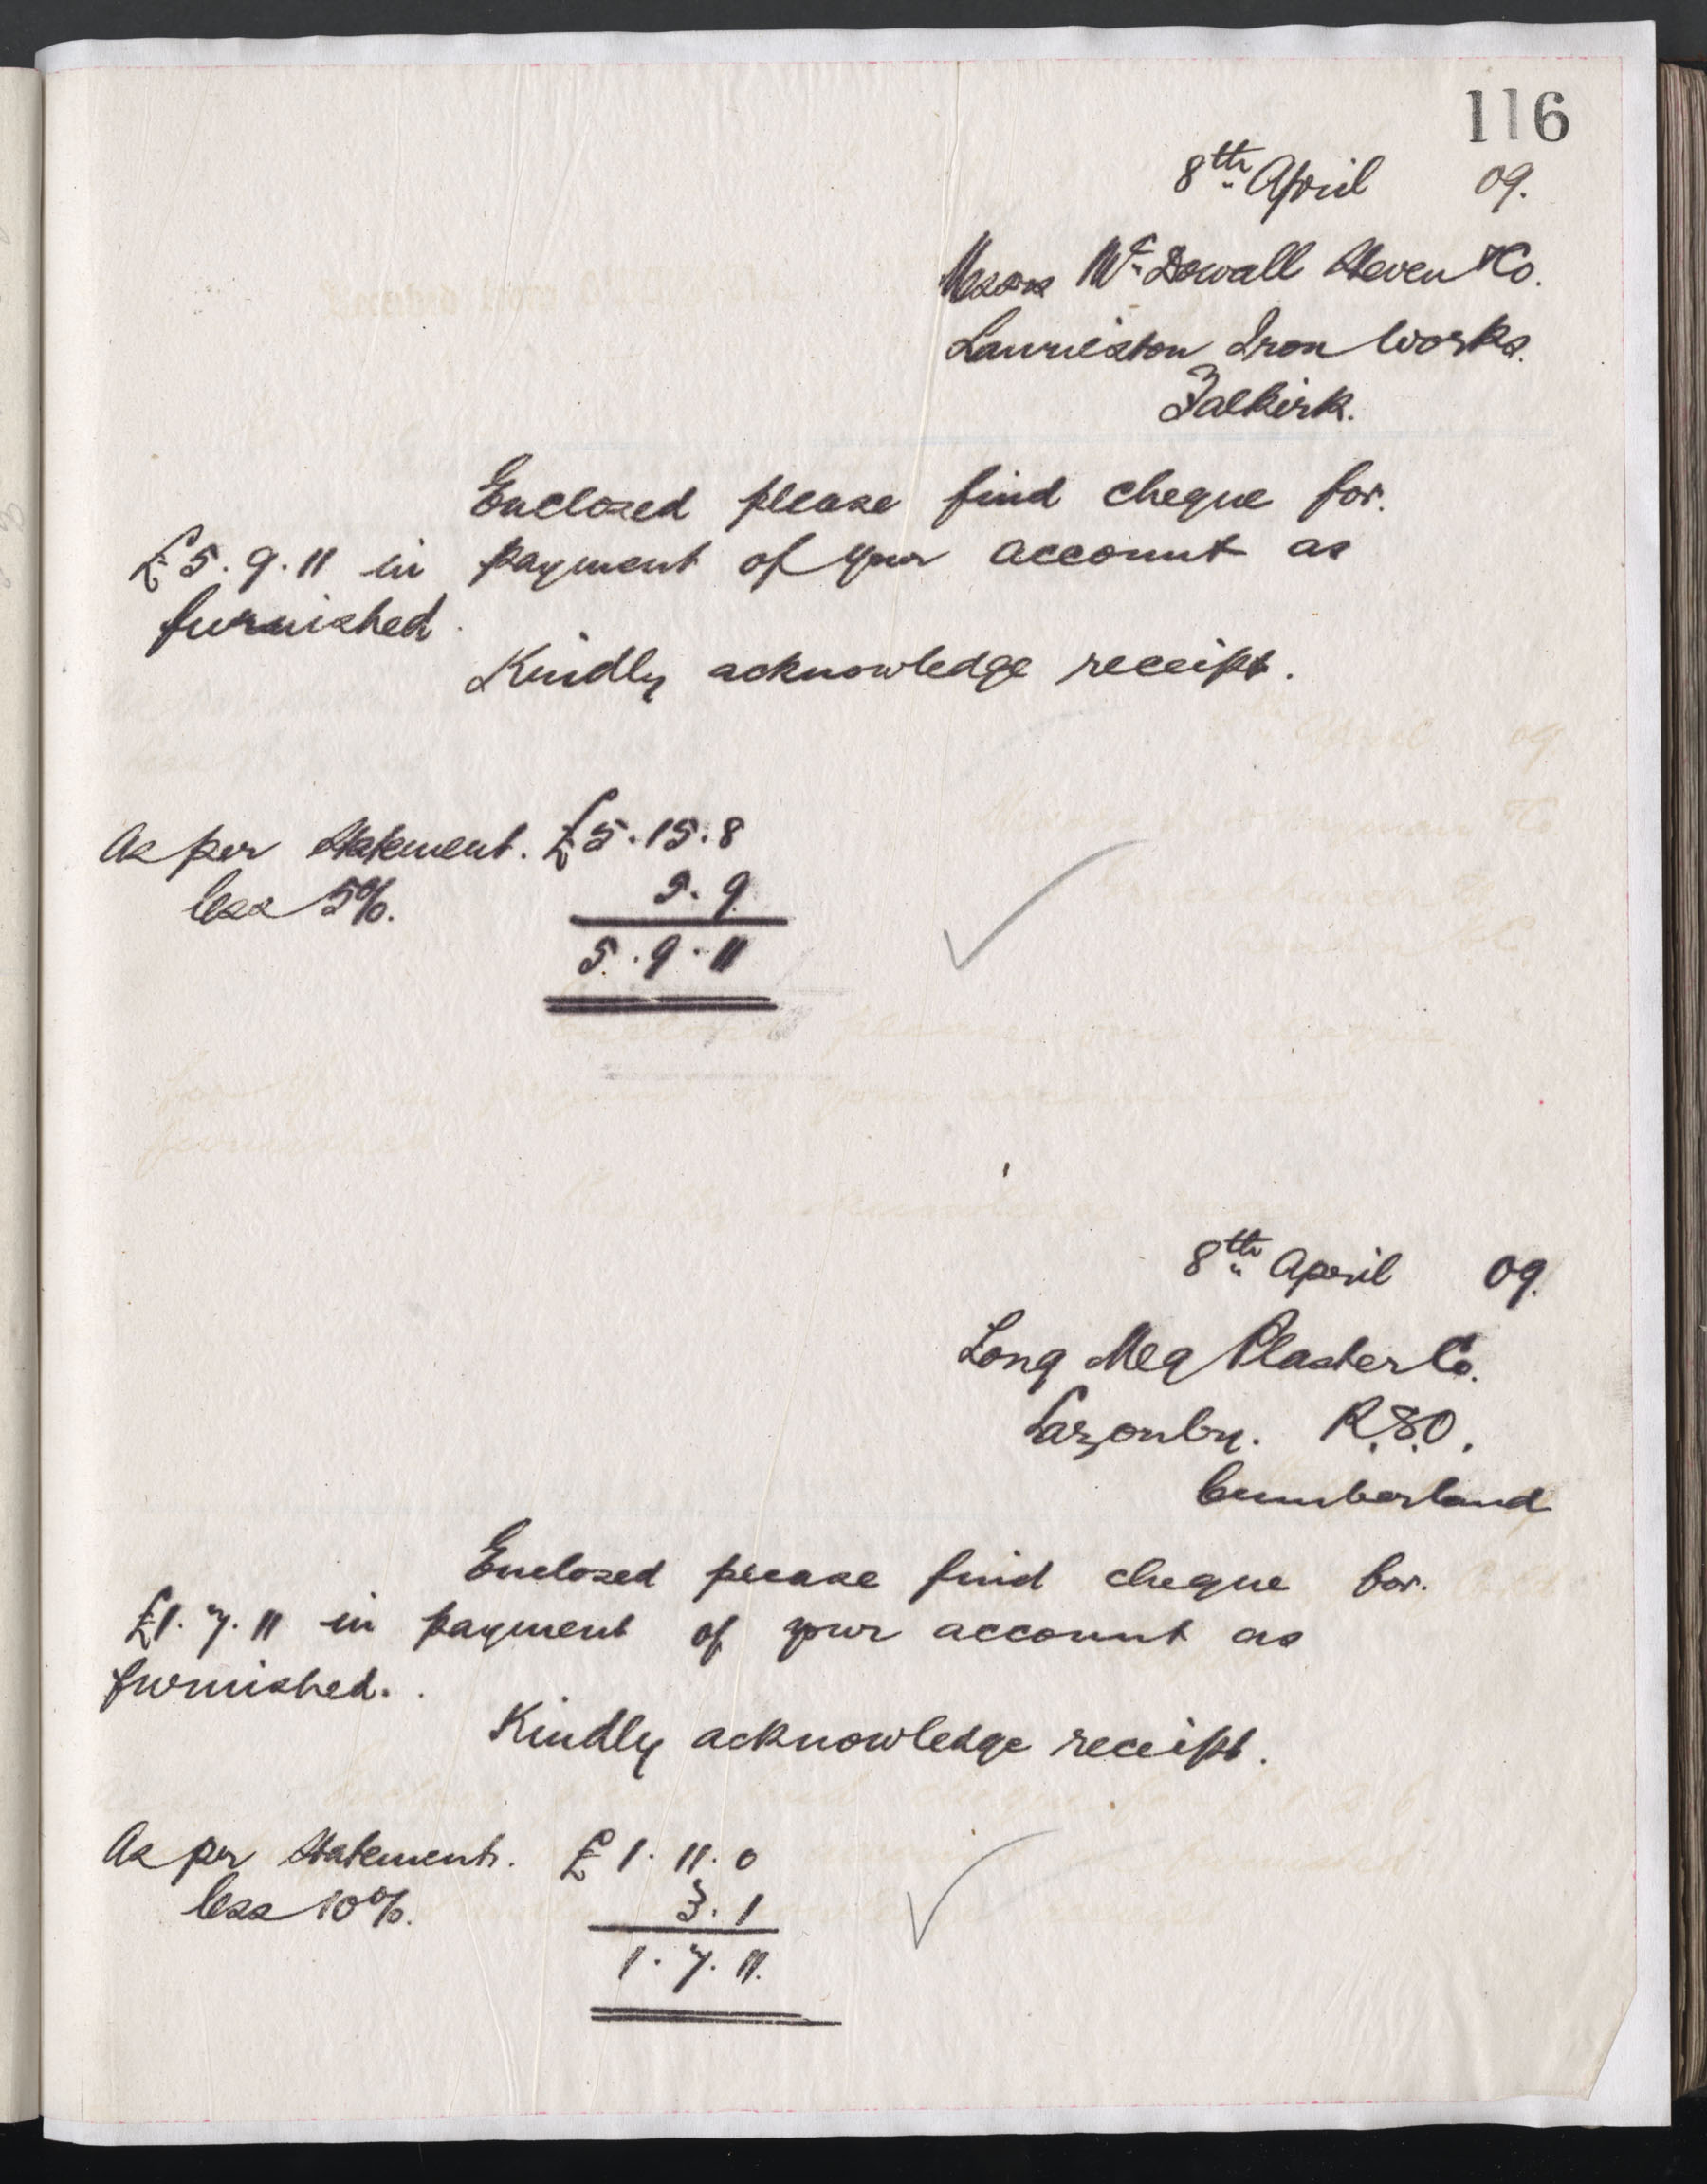 116
8th April 09.
Messrs McDowall Steven & Co.
Laurieston Iron Works.
Falkirk.
Enclosed please find cheque for.
£5.9.11 in payment of your account as
furnished.
Kindly acknowledge receipt.
As per Statement. £5.15.8
less 5%. 5.9
5.9.11
8th April 09.
Long Meg Plaster Co.
Lazonby. R.S.O.
Cumberland
Enclosed please find cheque for.
£1.7.11 in payment of your account as
furnished..
Kindly acknowledge receipt.
As per Statement. £1.11.0
less 10%. 3.1
1.7.11.